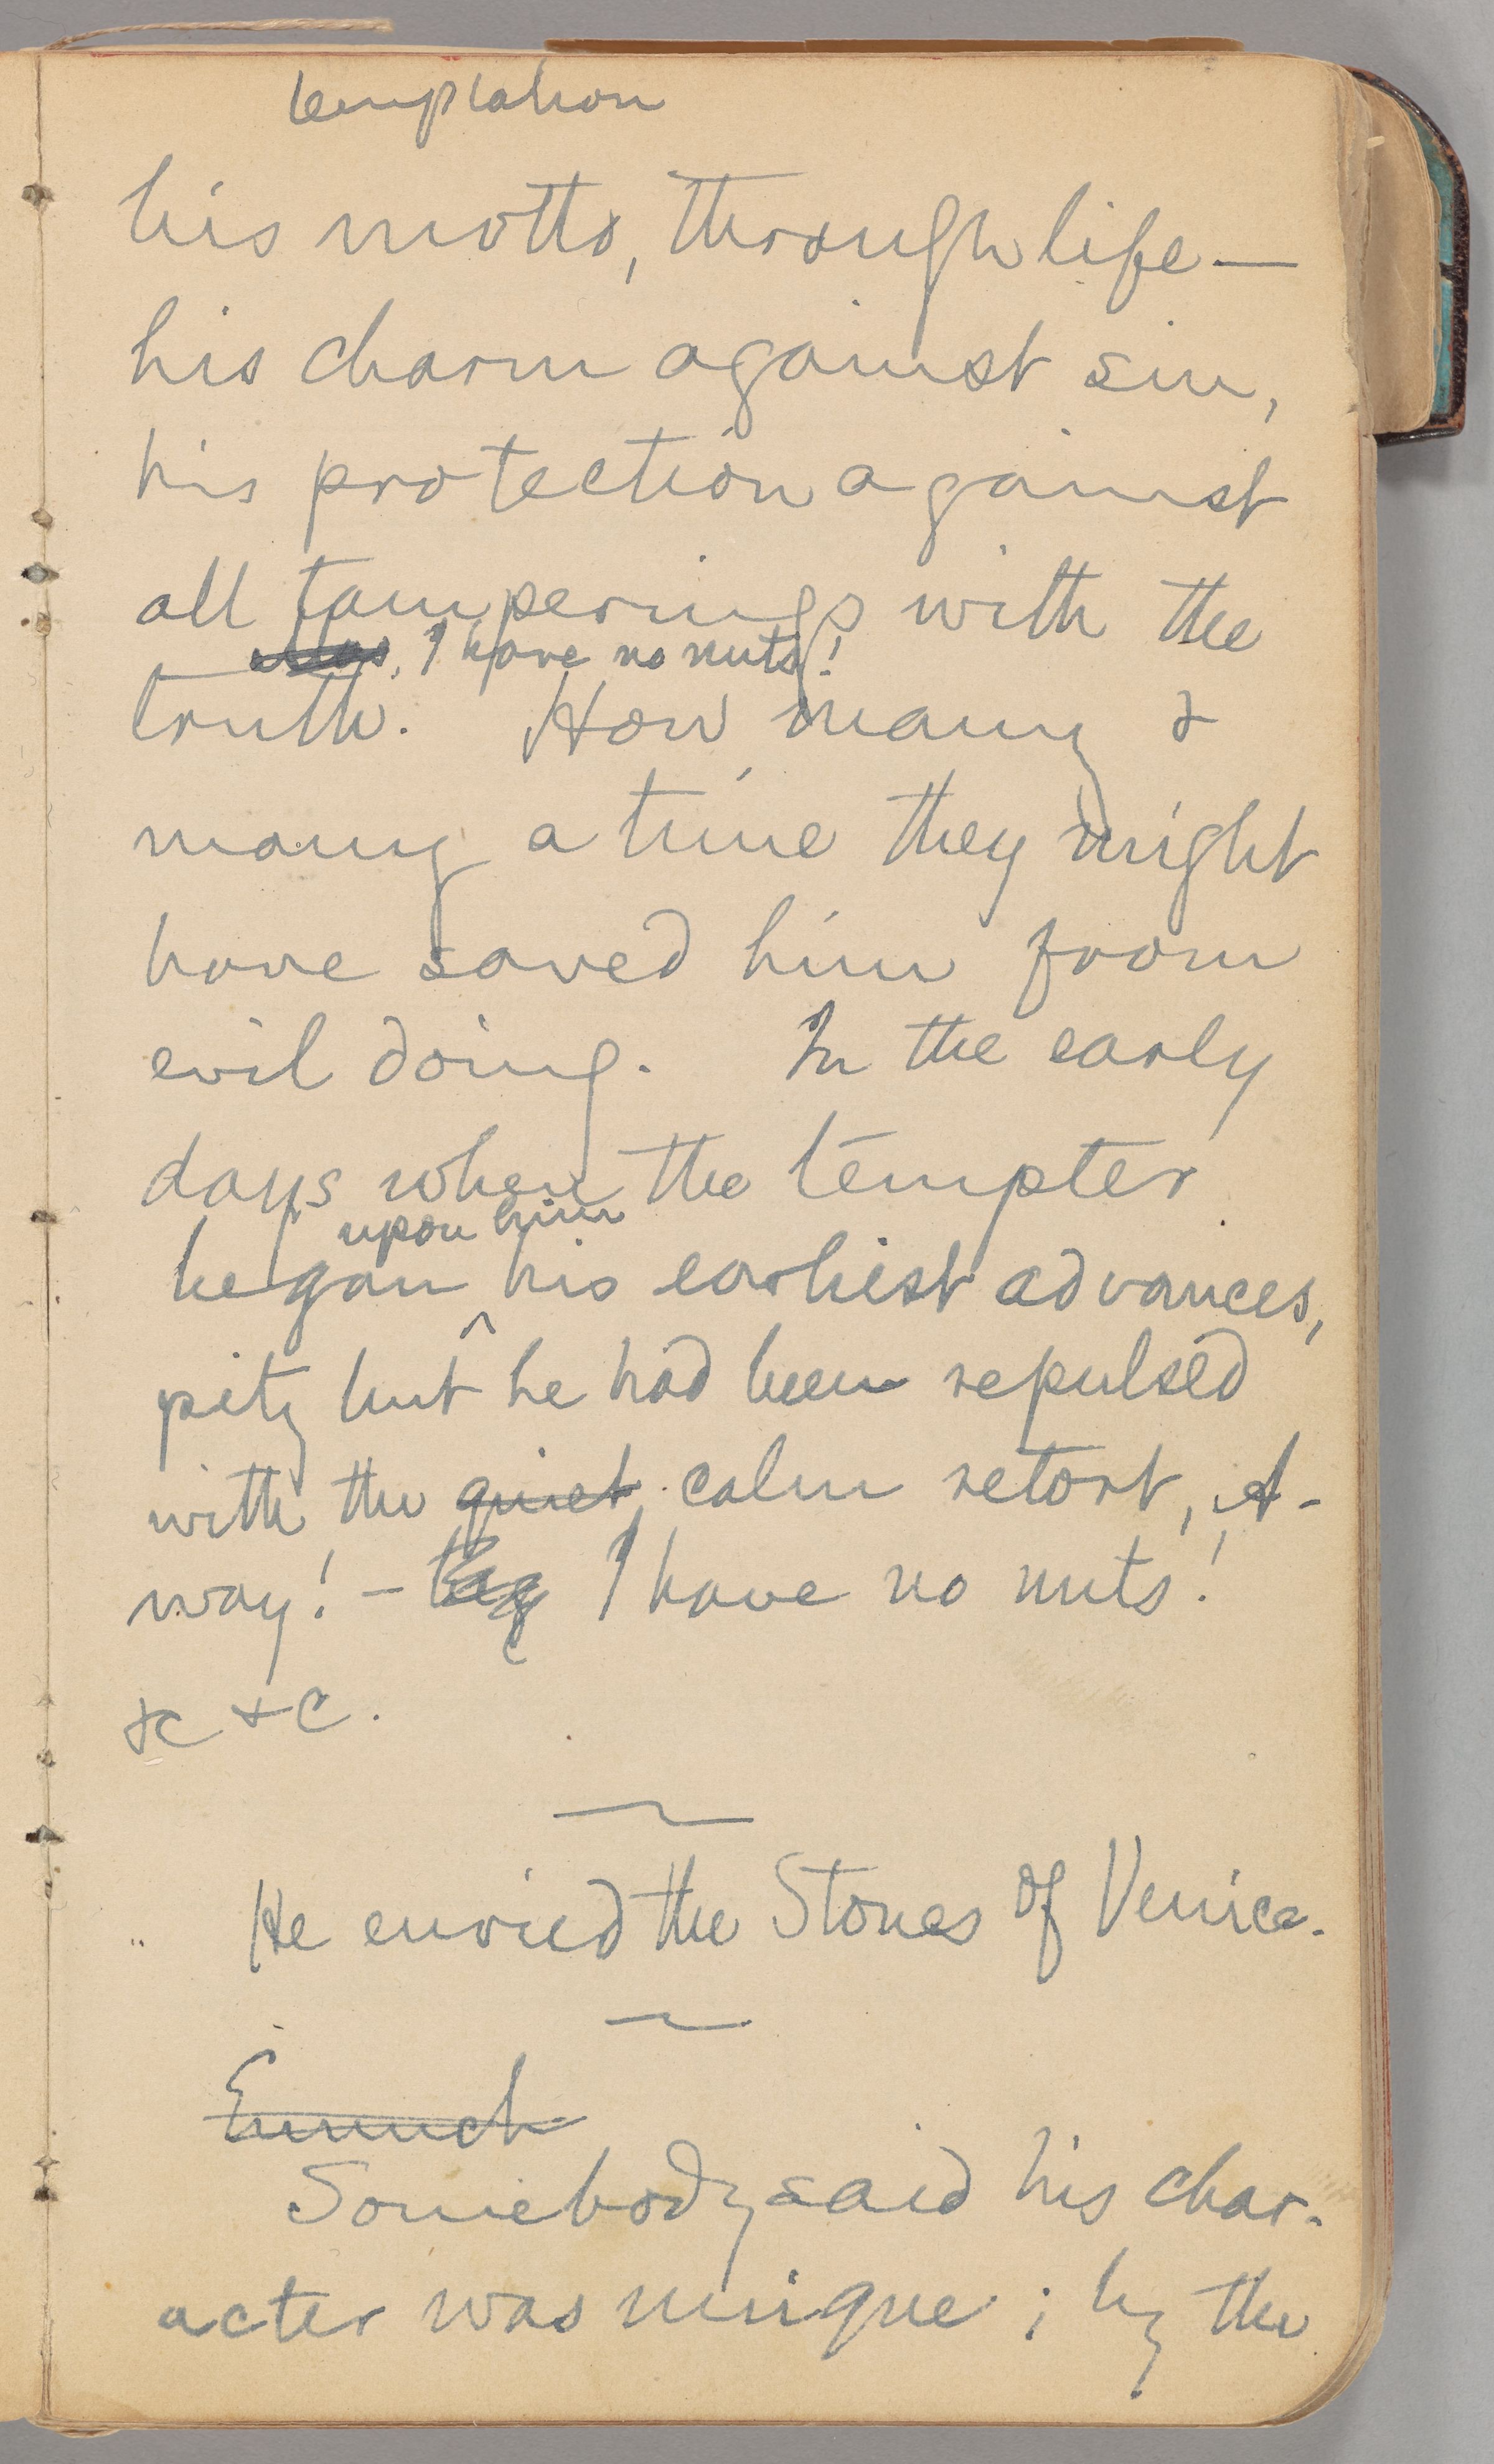 temptation
his motto, through life—
his charm against sin,
his protection against
all tamperings with the
I have no nuts!
truth. How many &
many a time they might
have saved him from
evil doing. In the early
days when the tempter
upon him
began ^ his earliest advances,
pity but he had been repulsed
with the quiet calm retort, A-
way! — I have no nuts!
&c &c.
He envied the Stones of Venice.
Eunuch
Somebody said his char-
acter was unique; by the